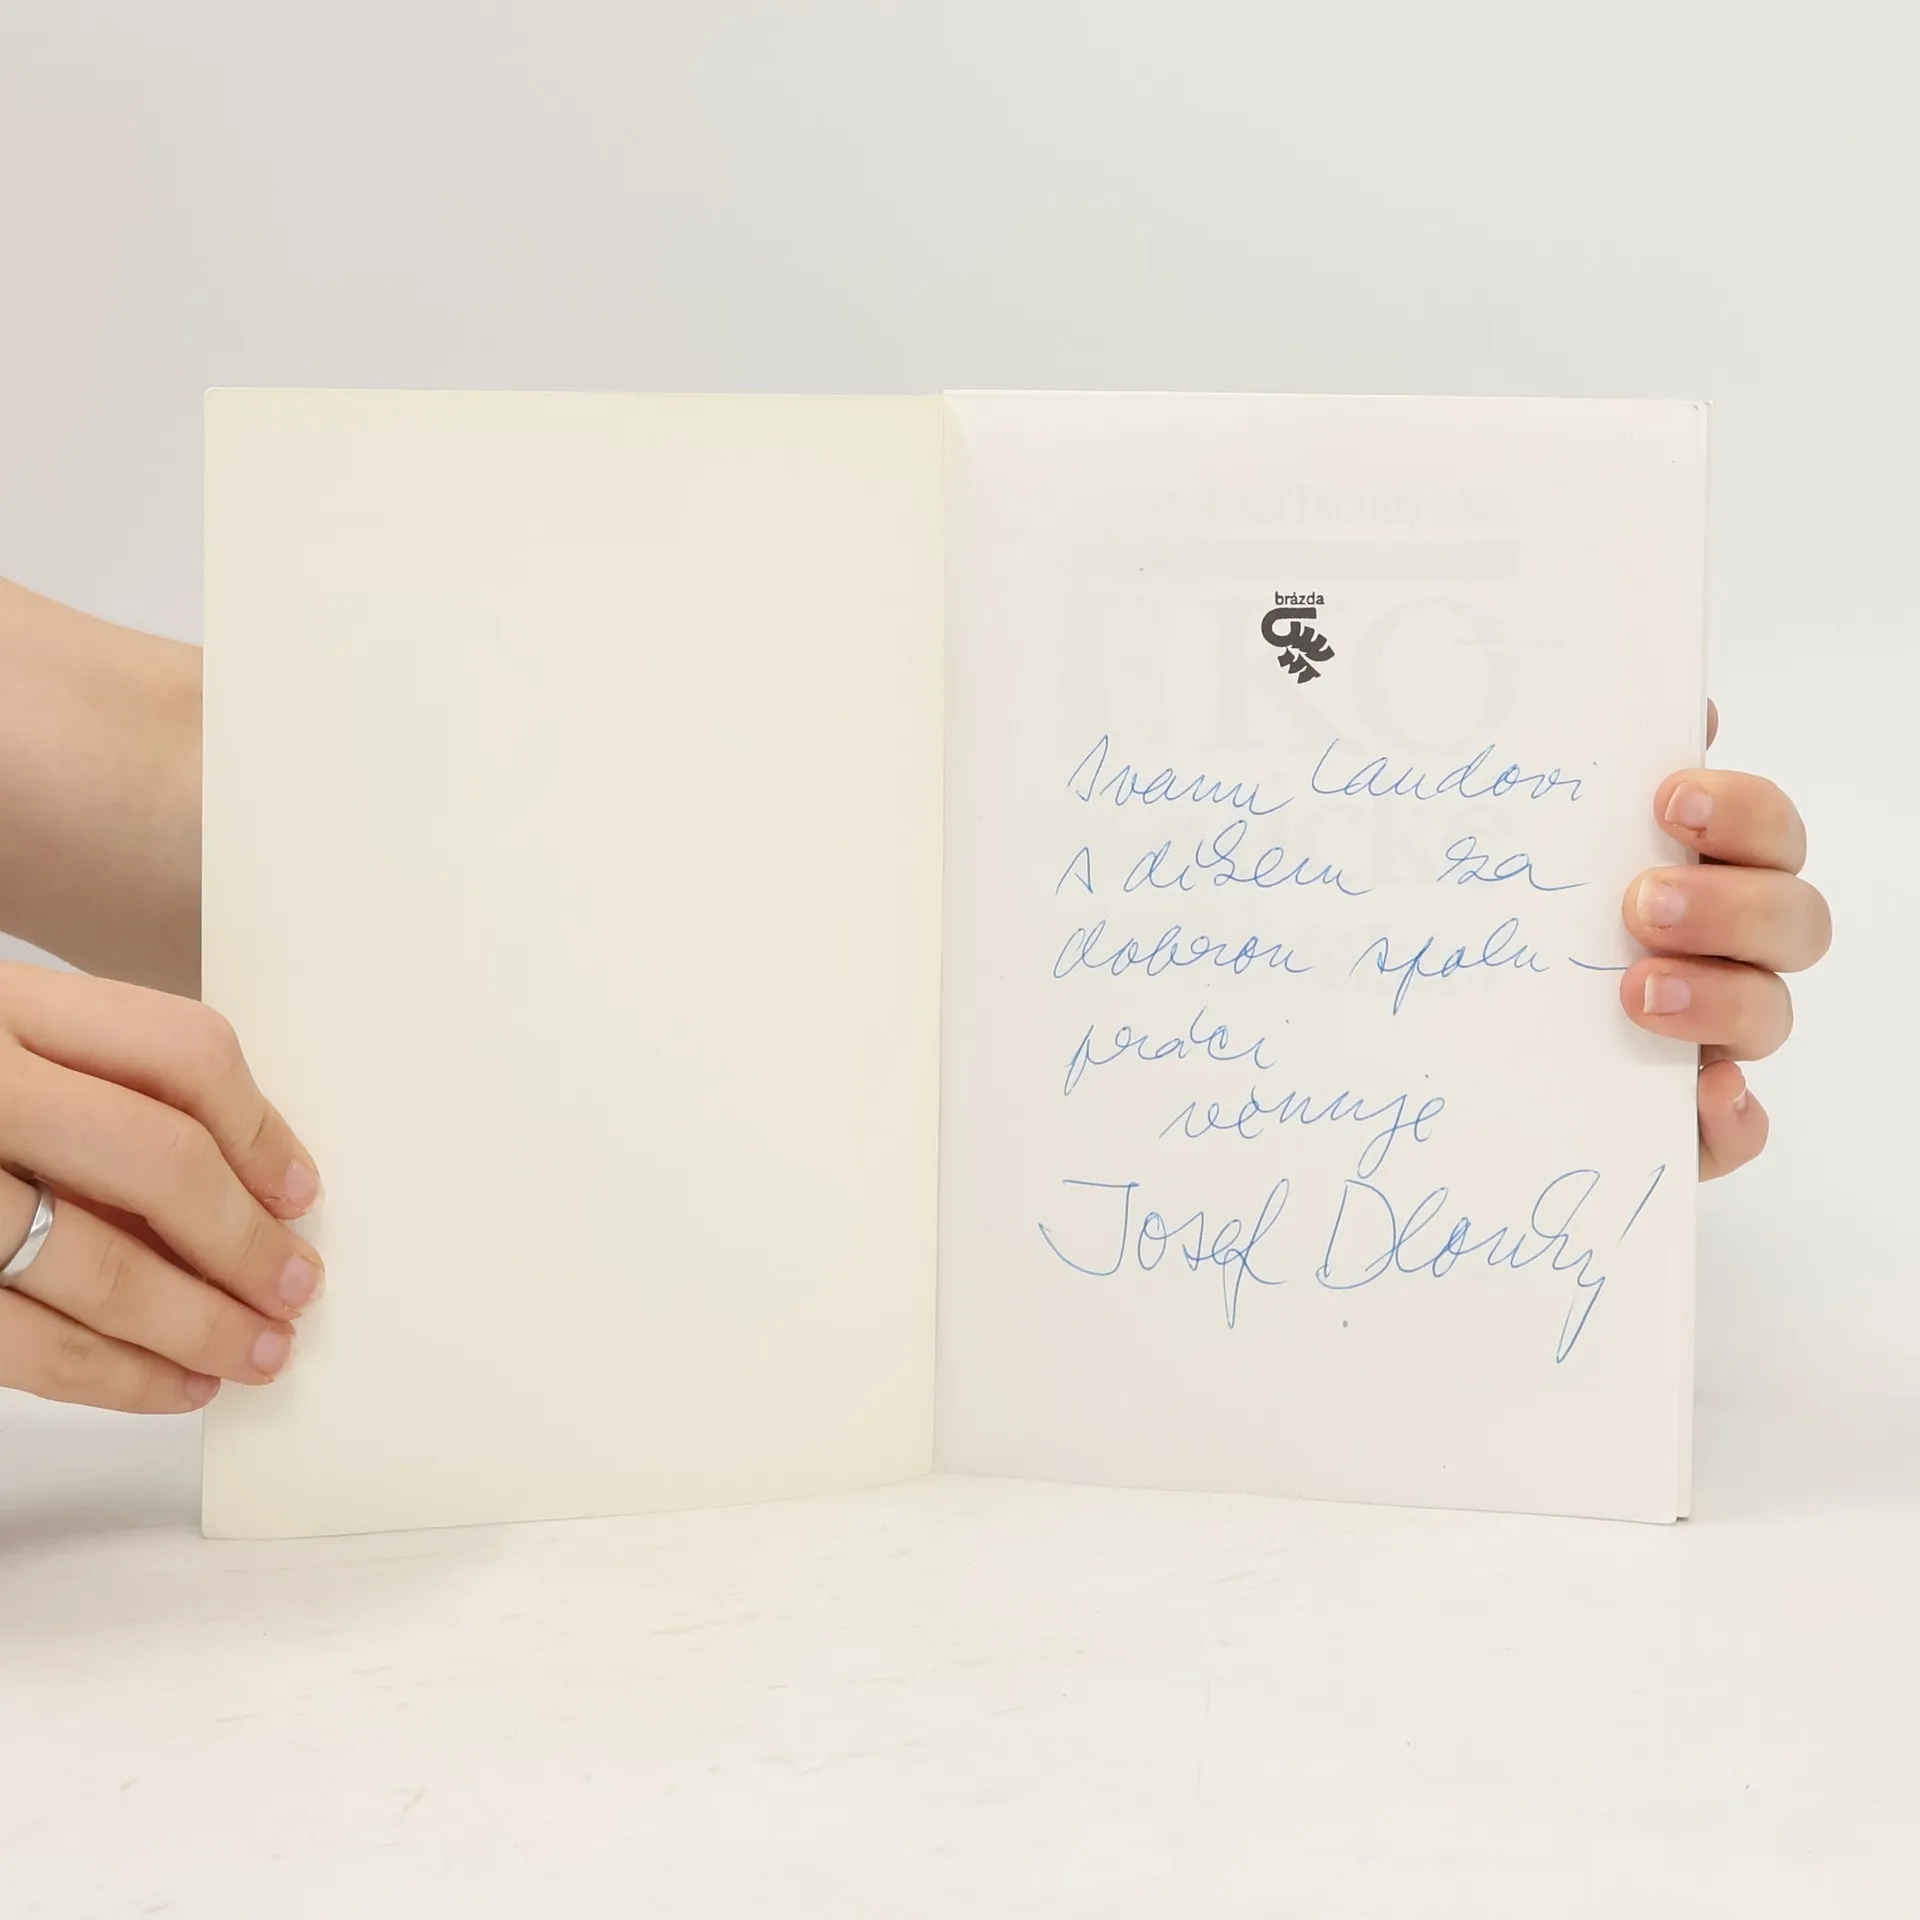 brázda
Ivanu Laudovi
s díkem za
dobrou spolu-
práci
věnuje
Josef Dlouhý